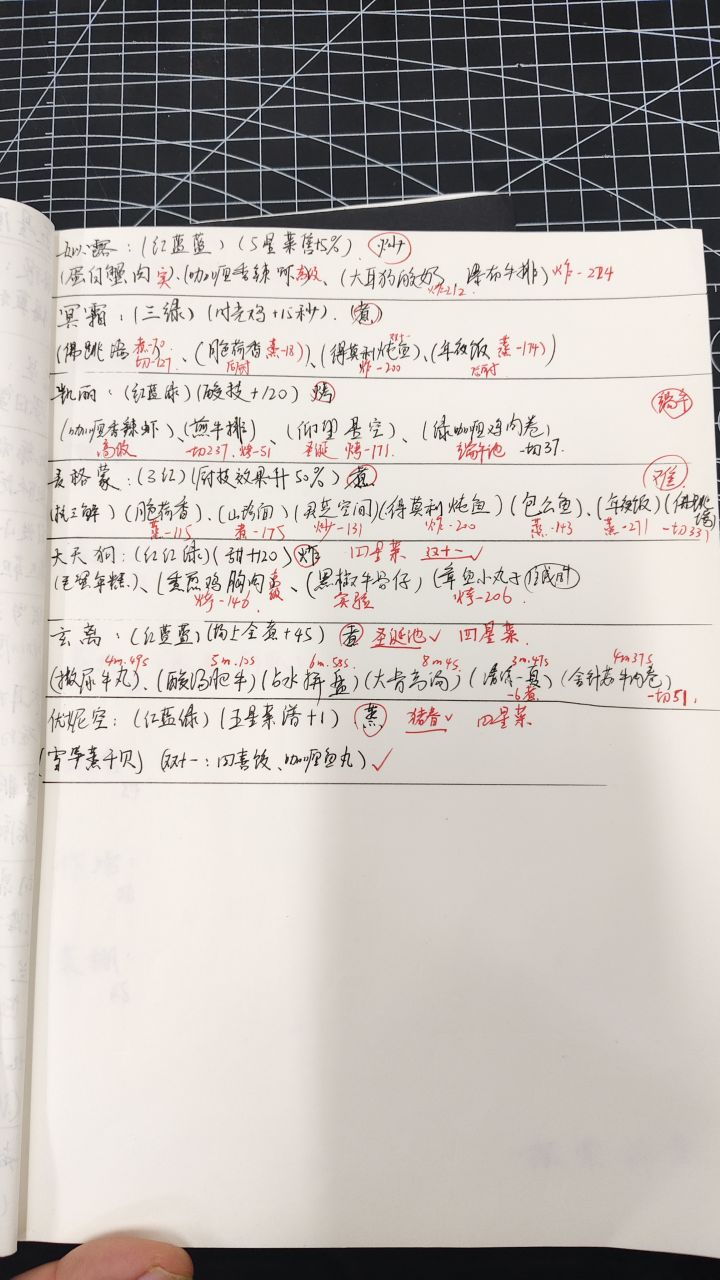 如露：(红蓝蓝) (5星菜售+5%) 炒
(蛋白蟹肉 实、(咖喱香辣虾 高级、(大耳狗酸奶 瀑布牛排) 炸-274
炸-212
冥霜：(三绿) (时光鸡+15秒). 煮
(佛跳墙 煮-70、(月色荷香 蒸-18)、(得莫利炖鱼)、(年夜饭 蒸-174)
切-127 后厨 炸-200 后厨
凯丽：(红蓝绿) (酸技+120) 烤 端午
(咖喱香辣虾)、(煎牛排)、(仰望星空)、(绿咖喱鸡肉卷)
高级 切237. 烤-51 圣诞 烤-171. 端午池 -切37.
麦格蒙：(3红) (厨技效果升50%) 煮 难
(月色荷香)、(山路面) (得莫利炖鱼) (包公鱼)、(年夜饭) (佛跳墙)
蒸-115 煮-175 炒-131 炸-200 蒸-143 蒸-271 -切331
大天狗：(红红绿) (甜+120) 炸 四星菜 双十一 ✓
(毛蟹年糕)、(香煎鸡胸肉、(黑椒牛骨仔) (章鱼小丸子
烤-146 高级 实验 烤-206
玄离：(红蓝蓝) (全煮+45) 煮 圣诞池 ✓ 四星菜.
4m.49s 5m.12s 6m.58s 8m4s 3m.47s 4m37s
(撒尿牛丸)、(酸汤肥牛) (占水拼盘) (大骨高汤) (清凉一夏) (金针菇牛肉卷)
-6煮 -切51.
优妮空：(红蓝绿) (五星菜谱+1) 蒸 猪脊 ✓ 四星菜.
(雪耳蒸干贝) (双十一：四喜饭、咖喱鱼丸) ✓